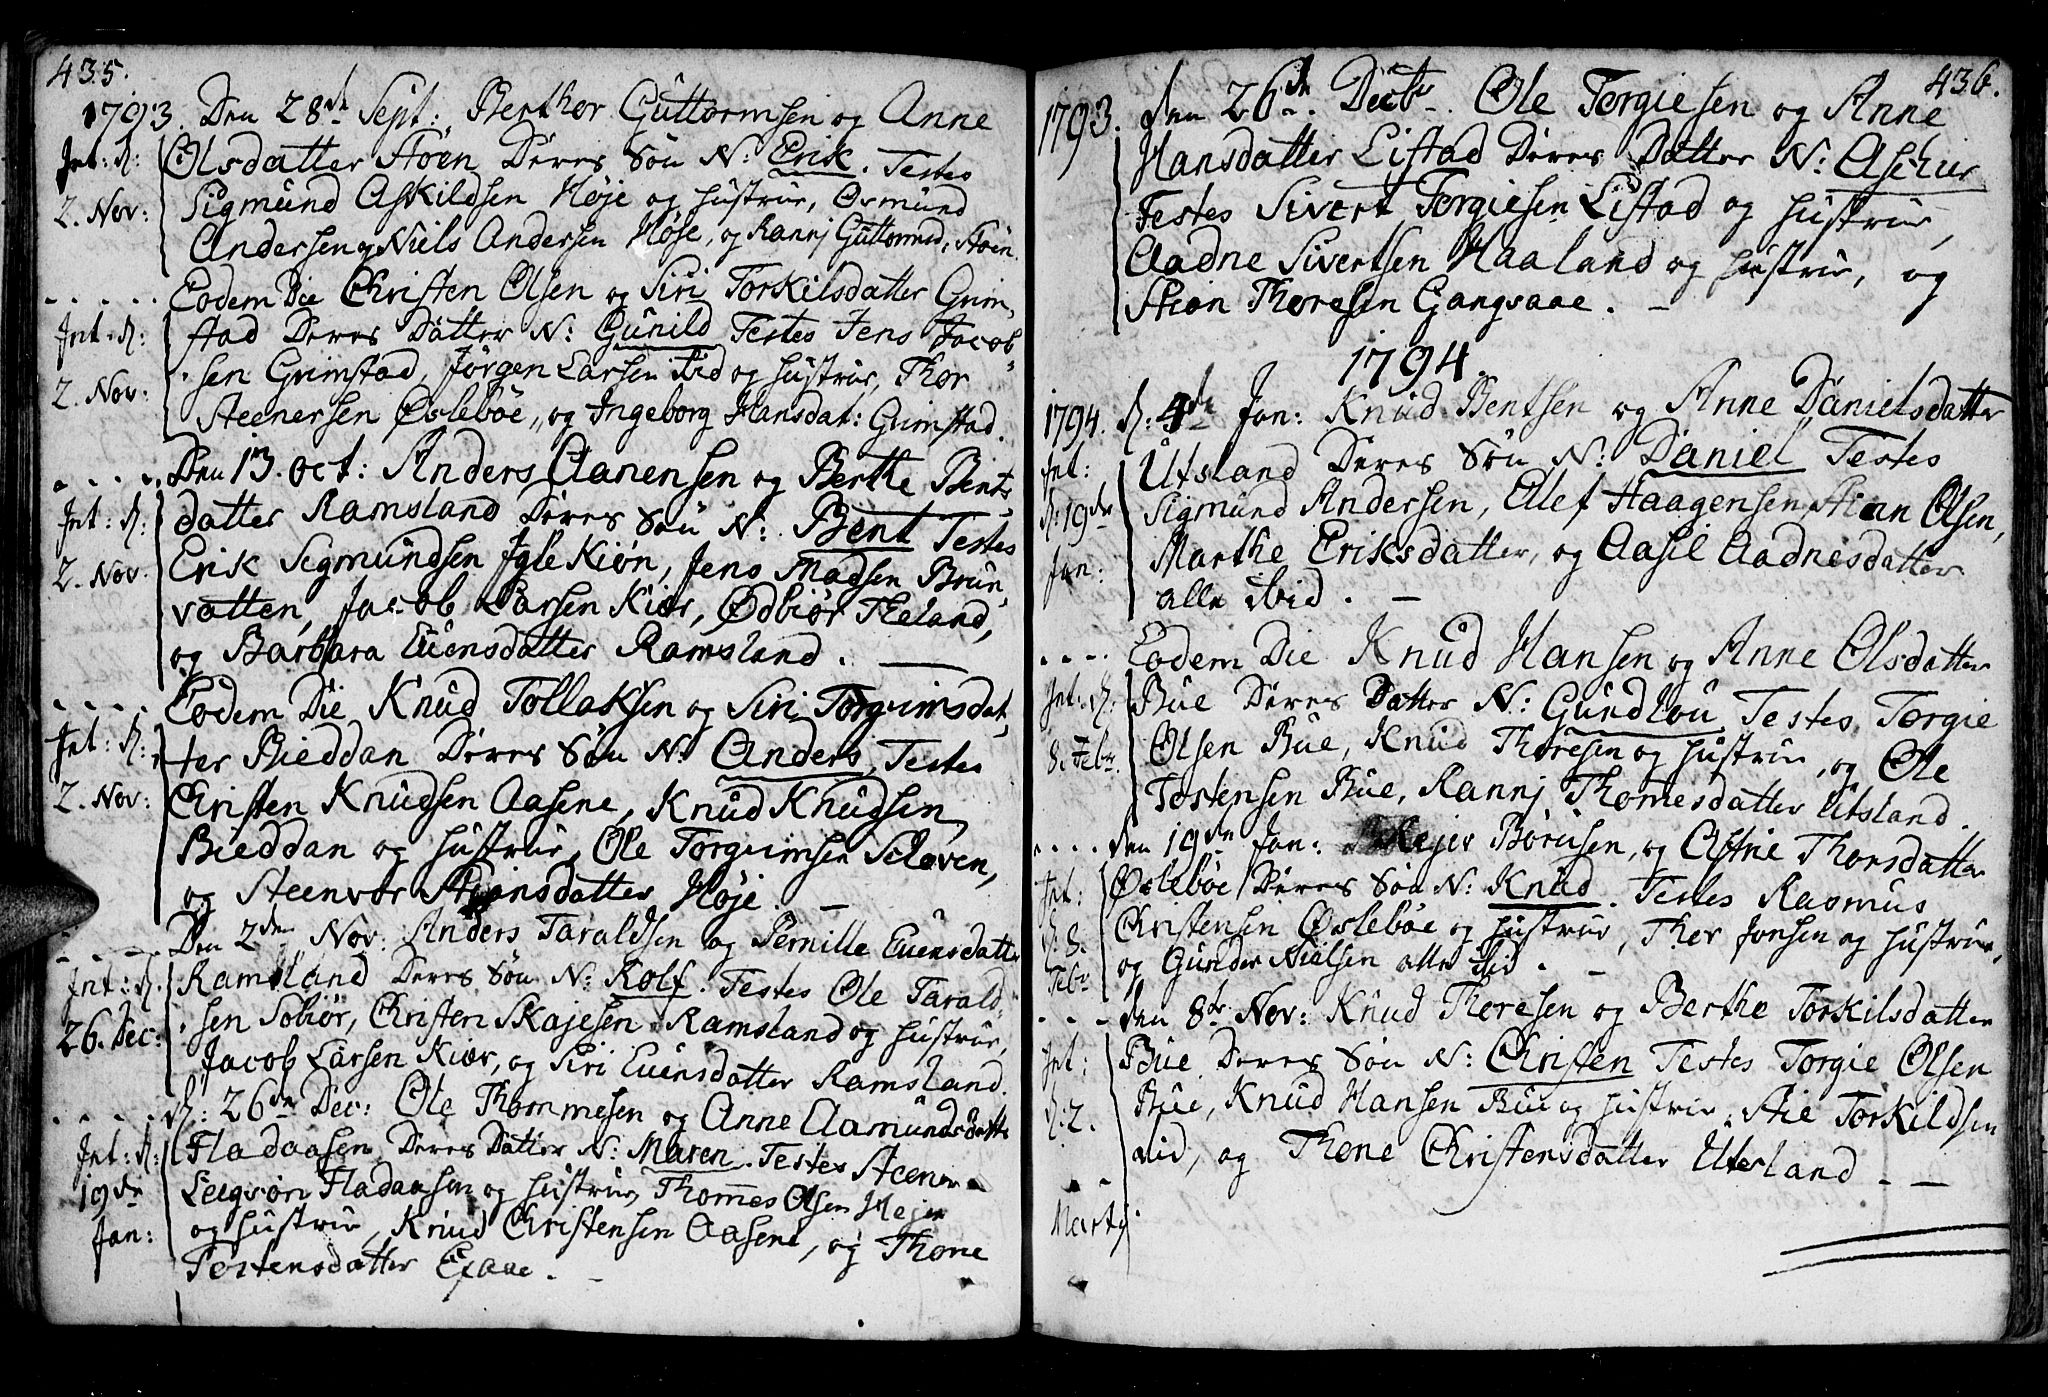 435.
1793. Den 28de Sept: Berthor Guttormsen og Anne
Int: d: Olsdatter Støen Deres Søn N: Erik. Testes
2. Nov: Sigmund Askildsen Høje og hustrue, Osmund
Andersen og Niels Andersen Høje, og Rannj Guttormsd. Støen.
Eodem Die Christen Olsen og Siri Torkilsdatter Grim-
Int: d: stad Deres Datter N: Gunild Testes Jens Jacob-
2. Nov: sen Grimstad, Jørgen Larsen ibid og hustrue, Thor
Steenersen Øslebøe, og Ingeborg Hansdat: Grimstad.
Den 13. oct: Anders Aanensen og Berthe Bents-
Int: d: datter Ramsland Deres Søn N: Bent Testes
2. Nov. Erik Sigmundsen Igle Kiøn, Jens Madsen Brun-
vatten, Jacob Larsen Kiær, Ødbiør Theland,
og Barbara Euensdatter Ramsland.
Eodem Die Knud Tollaksen og Siri Torgrimsdat-
Int: d: ter Bieddan Deres Søn N: Anders, Testes
2. Nov: Christen Knudsen Aasene, Knud Knudsen
Bieddan og hustrue, Ole Torgrimsen
og Steenvor Stiansdatter Høje.
Den 2den Nov: Anders Taraldsen og Pernille Euensdatter
Int: d. Ramsland Deres Søn N: Rolf. Testes Ole Tarald-
26. Dec: sen Sobiør, Christen Skajesen Ramsland og hustrue,
Jacob Larsen Kiær, og Siri Euensdatter Ramsland.
d: 26de Dec: Ole Thommesen og Anne Aamundsdatte
Int: d: Fladaasen Deres Datter N: Maren. Testes Steener
19de Fladaasen og hustrue, Thommes Olsen Højen
Jan: og hustrue, Knud Christensen Aasene, og Thone
Testensdatter Efaae.
436.
1793. den 26de Decbr. Ole Torgiesen og Anne
Hansdatter Listad Deres Datter N:
Testes Sivert Torgiesen Listad og hustrue,
Aadne Sivertsen Haaland og hustrue, og
Stian Thoresen Gangsaae.
1794.
1794. d: 4de Jan: Knud Bentsen og Anne Danielsdatter
Int: Udsland Deres Søn N: Daniel Testes
d: 19de Sigmund Andersen, Ellef Haagensen Stian Olsen,
Jan: Marthe Eriksdatter, og Aasil Aadnesdatter
alle ibid.
Eodem Die Knud Hansen og Anne Olsdatter
Int: d: Bue Deres Datter N: Gundlou Testes Torgie
8. Febr. Olsen Bue, Knud Thoresen og hustrue, og Ole
Tostensen Bue, Rannj Thomesdatter Utsland.
den 19de Jan: Rejer Børusen, og Astrie Thorsdatter
Int: Øslebøe Deres Søn N: Knud. Testes Rasmus
d: 8. Christensen Øslebøe og hustrue, Ther Jonsen og hustrue,
Febr og Gunder Nielsen alle ibid.
den 8de Nov: Knud Thoresen og Berthe Torkilsdatter
Int: Bue Deres Søn N: Christen Testes Torgie Olsen
d: 2. Bue, Knud Hansen Bue og hustrue, Stie Torkildsen
ibid, og Thone Christensdatter Uttersland.
Martij.